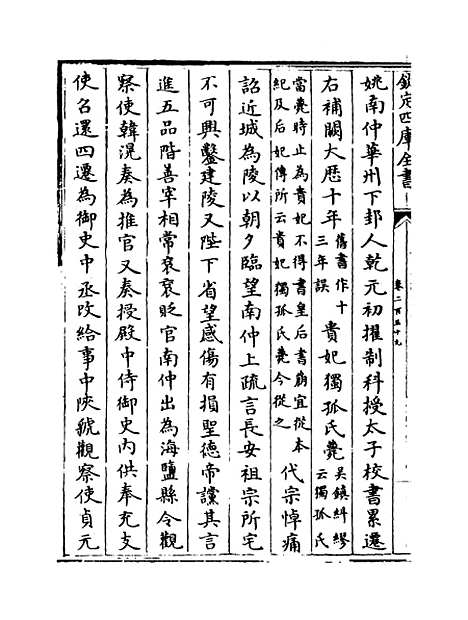 欽定四庫全書
卷二百五十九
姚南仲華州下邽人乾元初擢制科授太子校書累遷
右補闕大歴十年舊書作十三年誤貴妃獨孤氏薨吳鎮糾繆云獨孤氏
當薨時止為貴妃不得書皇后書崩宜從本紀及后妃傳所云貴妃獨孤氏薨今從之代宗悼痛
詔近城為陵以朝夕臨望南仲上疏言長安祖宗所宅
不可興鑿建陵又陛下省望感傷有損聖德帝讜其言
進五品階善宰相常衮衮貶官南仲出為海鹽縣令觀
察使韓滉奏為推官又奏授殿中侍御史内供奉充支
使召還四遷為御史中丞改給事中陝虢觀察使貞元